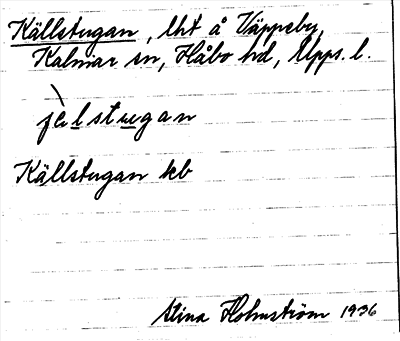 Källstugan, lht å Väppeby,
Kalmar sn, Håbo hd, Upps. l.
jèlstugan
Källstugan kb
Stina Holmström 1936